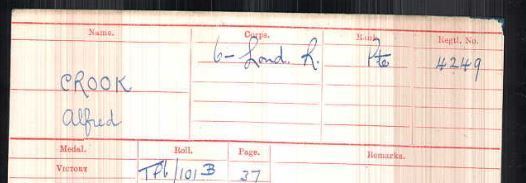 Name. Corps. Rank. Regtl. No.
6- Lond. R. Pte 4249
CROOK
Alfred
Medal. Roll. Page. Remarks.
VICTORY TP6/101B 37